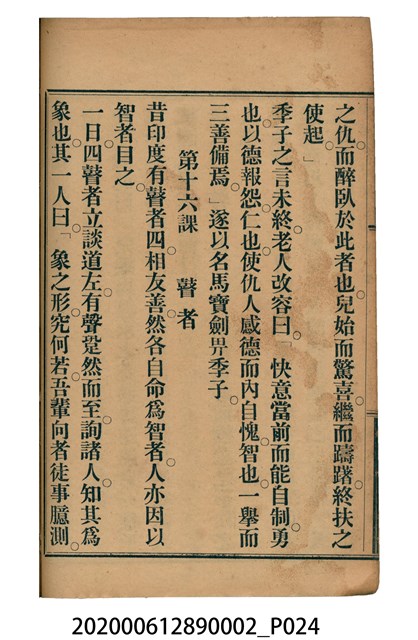 之仇。而醉臥於此者也。兒始而驚喜。繼而躊躇。終扶之
使起。」
季子之言未終。老人改容曰。「快意當前。而能自制。勇
也。以德報怨。仁也。使仇人感德而內自愧。智也。一舉而
三善備焉。」遂以名馬寶劍畀季子。
第十六課　瞽者
昔印度有瞽者四。相友善。然各自命爲智者。人亦因以
智者目之。
一日。四瞽者立談道左。有聲跫然而至。詢諸人。知其爲
象也。其一人曰。「象之形究何若。吾輩向者徒事臆測。
202000612890002_P024